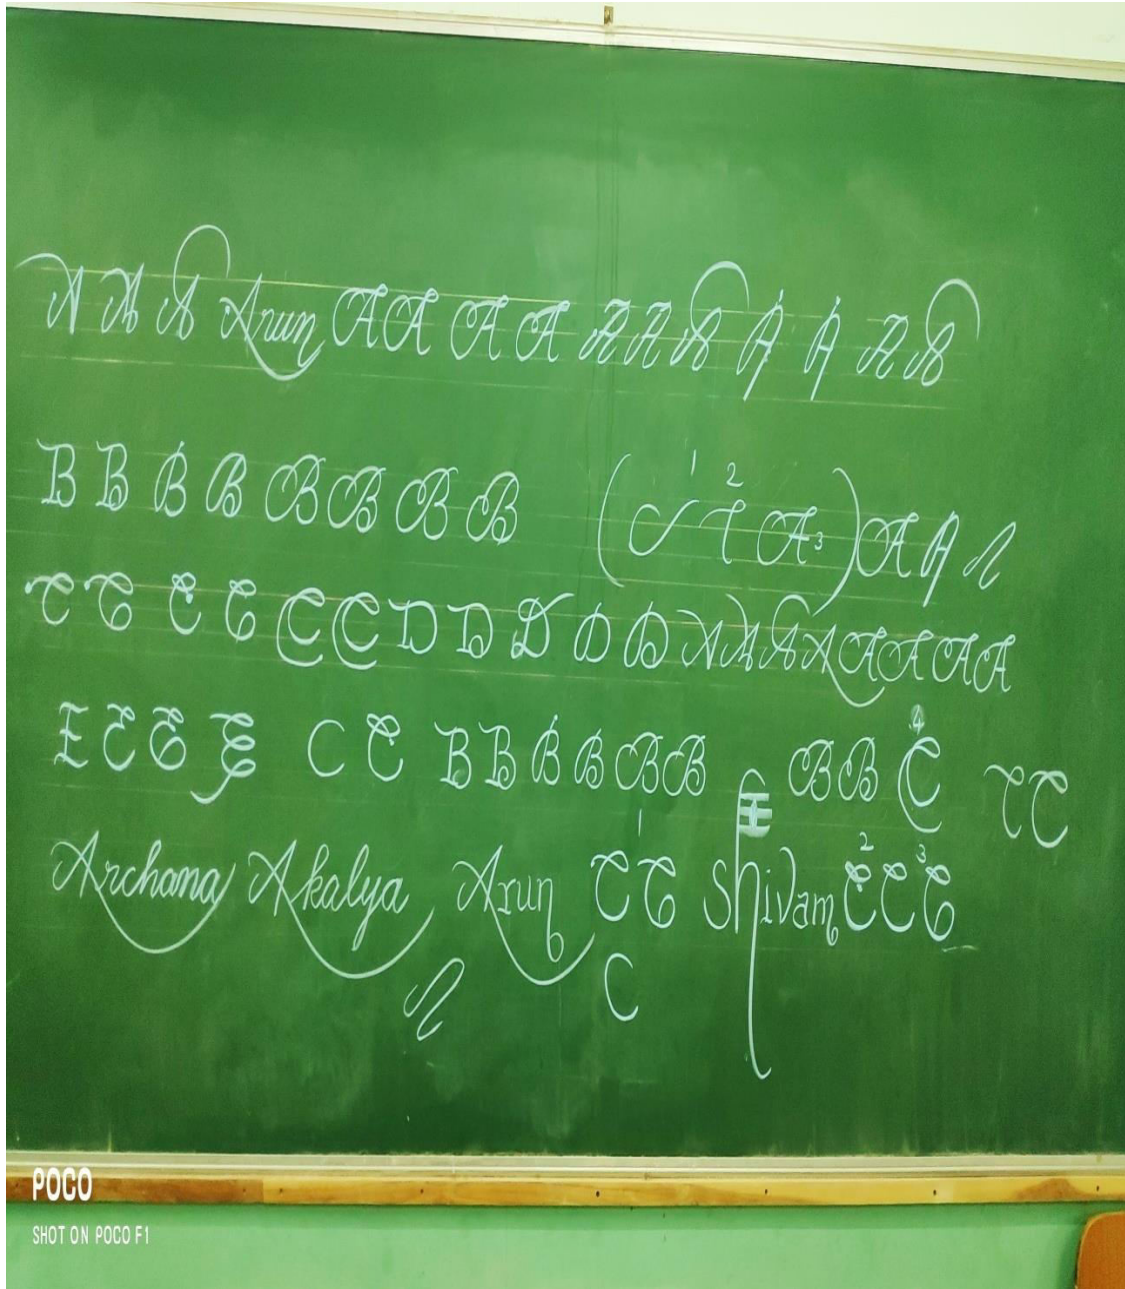 A A A Arun A A A A A A A A A A A
B B B B B B B B ( 1 2 A 3 ) A A
C C C C C C D D D D D A A A A A A A A
E E E E C C B B B B B B B B 4 C C
Archana Akalya Arun 1 C C Shivam 2 C C 3 C
C
POCO
SHOT ON POCO F1